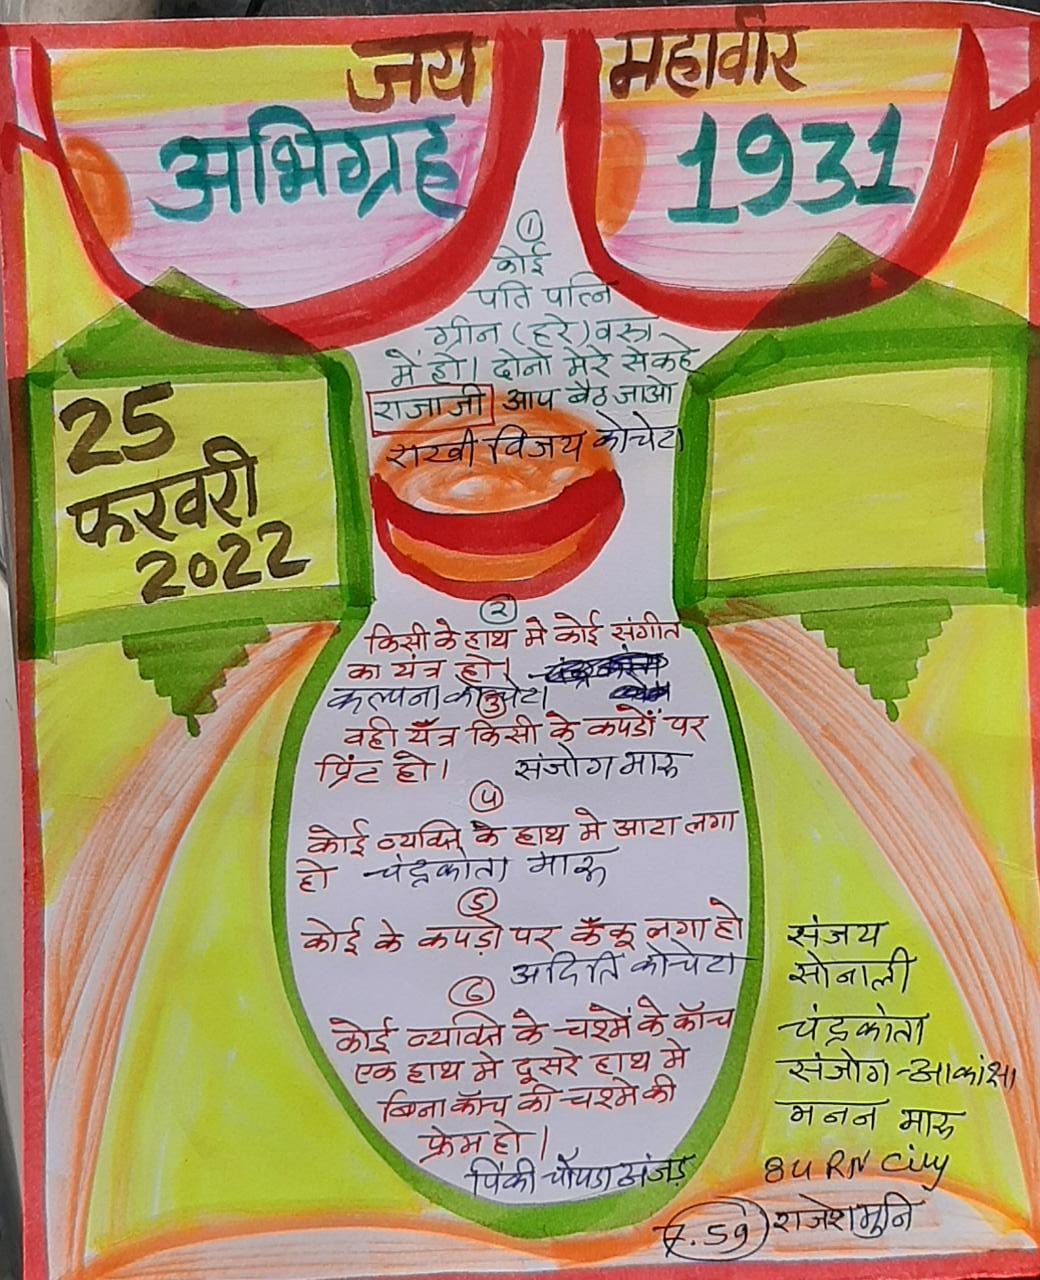 जय महावीर
अभिग्रह 1931
25
फरवरी
2022
1
कोई
पति पत्नि
ग्रीन (हरे) वस्त्र
में हो। दोनो मेरे से कहे
राजाजी आप बैठ जाओ
राखी विजय कोचेटा
2
किसी के हाथ मे कोई संगीत
का यंत्र हो।
कल्पना कोचेटा
3
वही यँत्र किसी के कपडों पर
प्रिंट हो। संजोग मारू
4
कोई व्यक्ति के हाथ मे आटा लगा
हो चंद्रकांता मारू
5
कोई के कपडो पर कँकू लगा हो
अदिति कोचेटा
6
कोई व्यक्ति के चश्में के काँच
एक हाथ मे दूसरे हाथ मे
बिना काँच की चश्मे की
फ्रेम हो।
पिंकी चोपडा
संजय
सोनाली
चंद्रकांता
संजोग-आकांक्षा
मनन मारू
84 RN City
7.59 राजेशमुनि